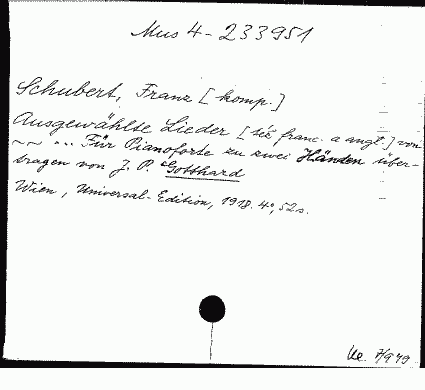 Mus 4-233951
Schubert, Franz [komp.]
Ausgewählte Lieder [też franc. a angl.] von
~~ ... Für Pianoforte zu zwei Händen über-
tragen von J. P. Gotthard
Wien, Universal-Edition, 1918. 4°, 52 s.
7/979